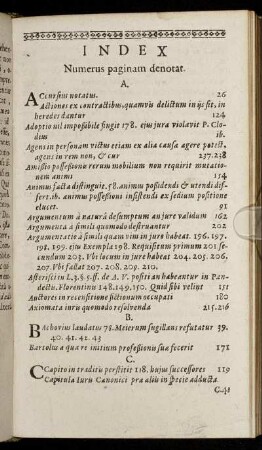 INDEX
Numerus paginam denotat.
A.
ACcursius notatus. 26
Actiones ex contractibus, quamvis delictum in ijs sit, in
heredes dantur 124
Adoptio nil impossibile fingit 178. ejus jura violavit P. Clo-
dius ib.
Agens in personam victus etiam ex alia causa agere potest,
agens in rem non, & cur 237.238
Amissio possessionis rerum mobilium non requirit mutatio-
nem animi 154
Animus facta distinguit. 58. animus possidendi & utendi dif-
fert. ib. animus possessioni insistendi ex sedium positione
elucet 91
Argumentum à naturâ desumptum an jure validum 162
Argumenta à simili quomodo destruantur 202
Argumentatio à simili quam vim in jure habeat. 196. 197.
198. 199. ejus Exempla 198. Requisitum primum 201. se-
cundum 203. Vbi locum in jure habeat 204. 205. 206,
207. Vbi fallat 207. 208. 209. 210.
Asteriscus in L. 3 §. ff. de A. P. positus an habeantur in Pan-
dectis. Florentinis 148. 149. 150. Quid sibi velint 151
Auctores in recensitione fictionum occupati 180
Axiomata iuris quomodo resolvenda 215. 216
B.
BAchovius laudatus 75. Meierum sugillans refutatur 39.
40. 41. 42. 43
Bartolus a qua re initium professionis suæ fecerit 171
C.
CApito in traditis perstitit 118. hujus successores 119
Capitula Iuris Canonici præ aliis in specie adducta.